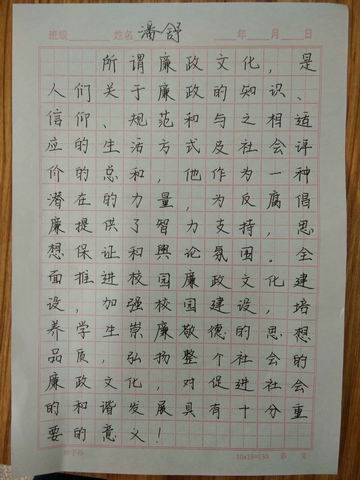 班级 姓名 潘舒 年 月 日
所谓廉政文化，是
人们关于廉政的知识、
信仰、规范和与之相适
应的生活方式及社会评
价的总和，他作为一种
潜在的力量，为反腐倡
廉提供了智力支持，思
想保证和舆论氛围。全
面推进校园廉政文化建
设，加强校园建设，培
养学生崇廉敬德的思想
品质，弘扬整个社会的
廉政文化，对促进社会
的和谐发展具有十分重
要的意义！
第 页